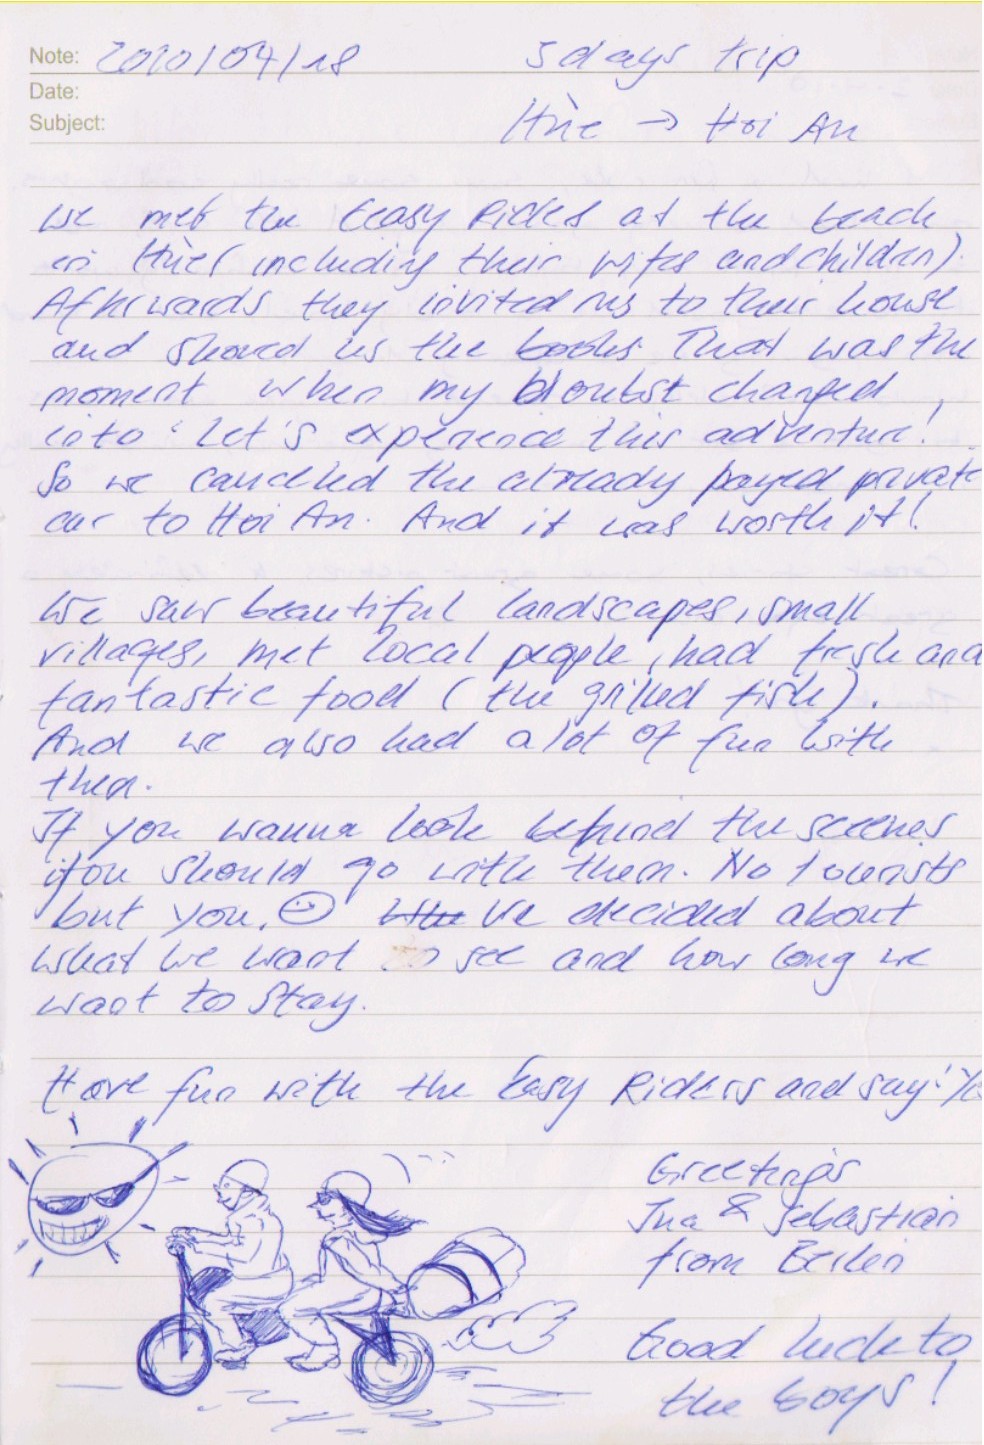 Note: 2010/04/18 3 days trip
Date:
Subject: Hùe → Hoi An
We met the Easy Riders at the beach
in Hùe (including their wifes and children).
Afterwards they invited us to their house
and showed us the books. That was the
moment when my doubt changed
into: Let's experience this adventure!
So we cancelled the already payed private
car to Hoi An. And it was worth it!
We saw beautiful landscapes, small
villages, met local people, had fresh and
fantastic food (the grilled fish).
And we also had a lot of fun with
them.
If you wanna look behind the scenes
you should go with them. No tourists
but you. ☺ We decided about
what we want to see and how long we
want to stay.
Have fun with the Easy Riders and say:
Greetings
Ina & Sebastian
from Berlin
Good luck to
the boys!